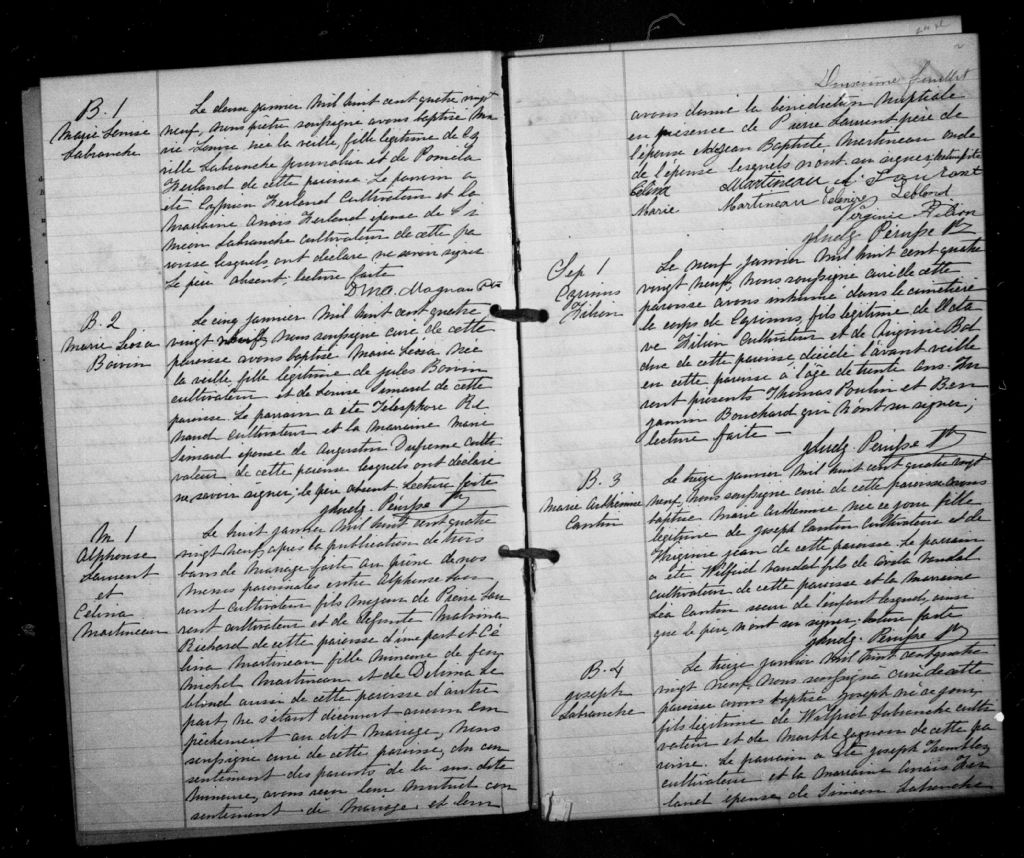 B. 1
Marie Louise
Labranche
Le deux janvier mil huit cent quatre vingt
neuf, nous prêtre soussigné avons baptisé Ma
rie Louise née la veille, fille légitime de
ville Labranche journalier et de Poméla
Herland de cette paroisse. Le parrain a
été Cyprien Herland cultivateur et la
marraine Anaïs Herland épouse de Si
méon Labranche cultivateur de cette pa
roisse lesquels ont déclaré ne savoir signer
Le père absent, lecture faite
Magnan Ptre
B. 2
Marie Léosa
Boivin
Le cinq janvier mil huit cent quatre
vingt neuf, nous soussigné curé de cette
paroisse avons baptisé Marie Léosa née
la veille fille légitime de Jules Boivin
cultivateur et de Louise Simard de cette
paroisse. Le parrain a été Télesphore
cultivateur et la marraine Marie
Simard épouse de Augustin Dufresne culti
vateur de cette paroisse lesquels ont déclaré
ne savoir signer; le père absent. Lecture faite
Pérusse Ptr
M 1
Alphonse
Laurent
et
Célina
Martineau
Le huit janvier mil huit cent quatre
vingt neuf, après la publication de trois
bans de mariage faite au prône de nos
messes paroissiales entre Alphonse Lau
rent cultivateur fils majeur de Pierre Lau
rent cultivateur et de défunte
Richard de cette paroisse d'une part et Cé
lina Martineau fille mineure de feu
Michel Martineau et de Délima Le
blond aussi de cette paroisse d'autre
part, ne s'étant découvert aucun em
pêchement au dit mariage, nous
soussigné curé de cette paroisse, du con
sentement des parents de la sus-dite
mineure, avons reçu leur mutuel con
sentement de mariage et leur
2
Deuxième feuillet
avons donné la bénédiction nuptiale
en présence de Pierre Laurent père de
l'épouse et Jean Baptiste Martineau oncle
de l'épouse lesquels n'ont su signer
Célina Martineau Laurent
Marie Martineau Leblond
Virginie
Pérusse Ptr
Sep 1
Cyrinus
Filion
Le neuf janvier mil huit cent quatre
vingt neuf, nous soussigné curé de cette
paroisse avons inhumé dans le cimetière
le corps de Cyrinus, fils légitime de Octa
ve Filion cultivateur et de Virginie Bol
duc de cette paroisse décédé l'avant veille
en cette paroisse à l'âge de trente ans. Fu
rent présents Thomas Poulin et Ben
jamin Bouchard qui n'ont su signer;
lecture faite —
Pérusse Ptr
B. 3
Marie Arthémise
Cantin
Le treize janvier mil huit cent quatre vingt
neuf, nous soussigné curé de cette paroisse avons
baptisé Marie Arthémise née ce jour fille
légitime de Joseph Cantin cultivateur et de
Jean de cette paroisse. Le parrain
a été Wilfrid Vandal fils de Vandal
cultivateur de cette paroisse et la marraine
Léa Cantin sœur de l'enfant lesquels, ainsi
que le père, n'ont su signer. Lecture faite
Pérusse Ptr
B. 4
Joseph
Labranche
Le treize janvier mil huit cent quatre
vingt neuf, nous soussigné curé de cette
paroisse avons baptisé Joseph né ce jour,
fils légitime de Wilfrid Labranche culti
vateur et de Marthe Gagnon de cette pa
roisse. Le parrain a été Joseph Tremblay
cultivateur et la marraine Anaïs Her
land épouse de Siméon Labranche